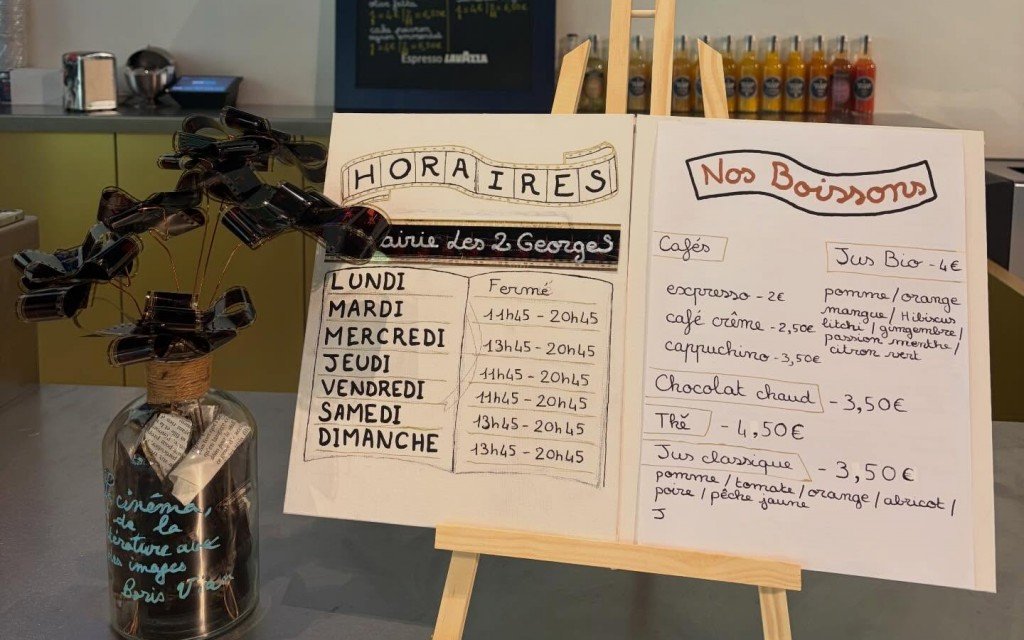 Espresso LAVAZZA
HORAIRES
airie des 2 Georges
LUNDI Fermé
MARDI 11h45 - 20h45
MERCREDI 13h45 - 20h45
JEUDI 11h45 - 20h45
VENDREDI 11h45 - 20h45
SAMEDI 13h45 - 20h45
DIMANCHE 13h45 - 20h45
Nos Boissons
Cafés
expresso - 2€
café crême - 2,50€
cappuchino - 3,50€
Jus Bio - 4€
pomme/orange
mangue/Hibiscus
litchi/gingembre/
passion menthe/
citron vert
Chocolat chaud - 3,50€
Thé - 4,50€
Jus classique - 3,50€
pomme/tomate/orange/abricot/
poire/pêche jaune
J
cinéma,
de la
avec
images
Boris Vian